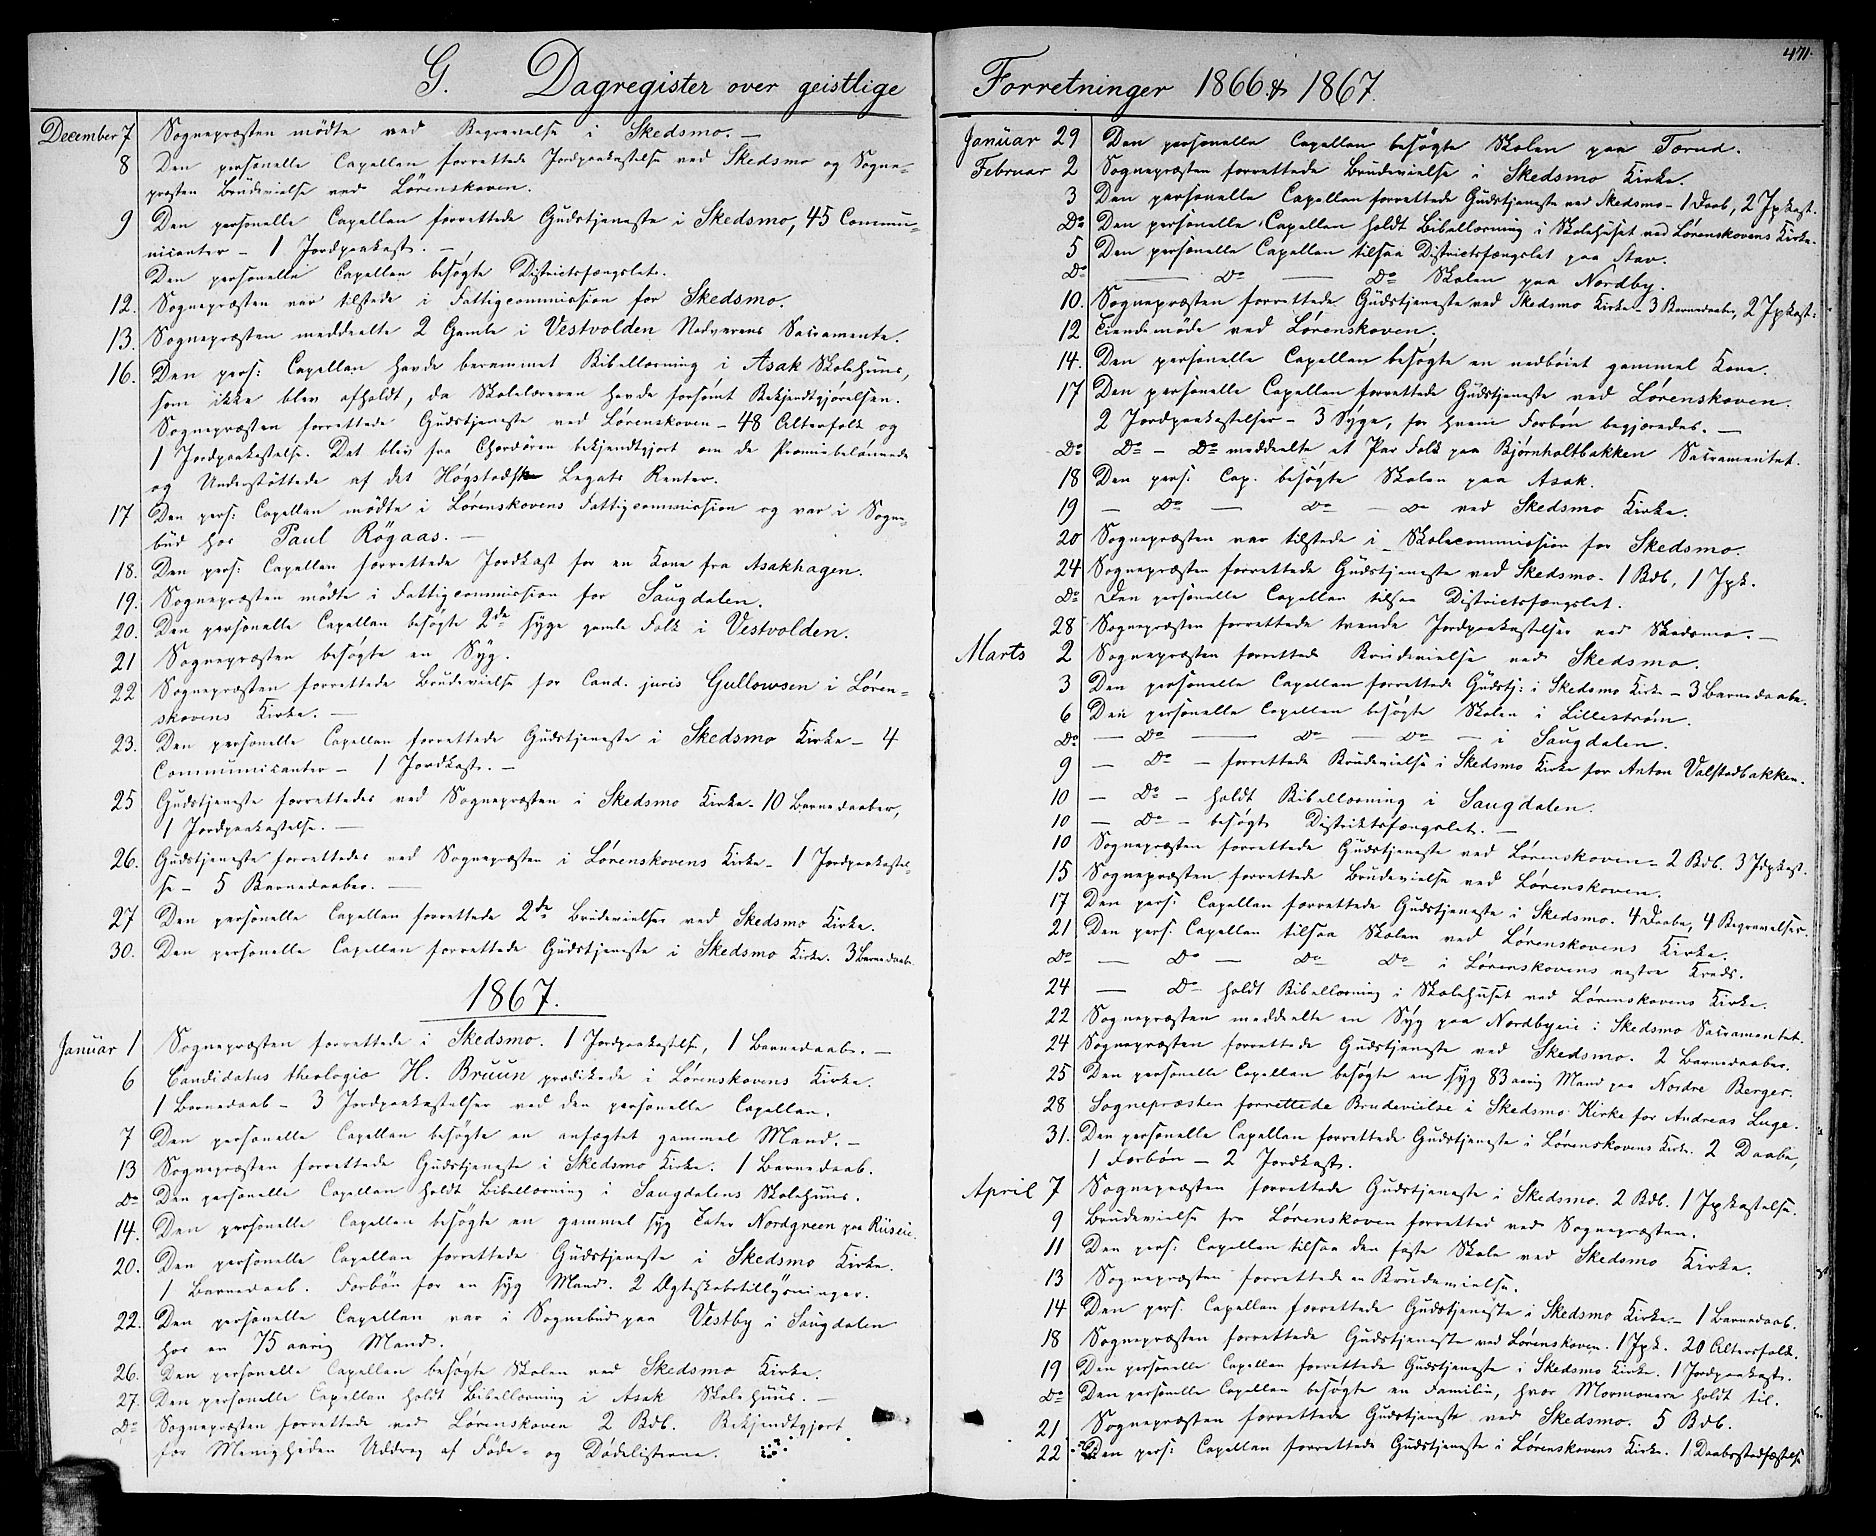 G. Dagregister over geistlige
December 7 Sognepræsten mödte ved Begravelse i Skedsmo. —
8 Den personelle Capellan forrettede Jordpaakastelse ved Skedsmo og Sogne-
præsten Brudevielse ved Lörenskoven.
9 Den personelle Capellan forrettede Gudstjeneste i Skedsmo, 45 Commu-
nicanter – 1 Jordpaakast. —
Den personelle Capellan besögte Districtsfængslet.
12. Sognepræsten var tilstede i Fattigcommission for Skedsmo.
13. Sognepræsten meddeelte 2 Gamle i Vestvolden Nadverens Sacramente.
16. Den pers: Capellan havde berammet Bibellæsning i Asak Skolehuus,
som ikke blev afholdt, da Skolelæreren havde forsömt Bekjendtgjörelsen.
Sognepræsten forrettede Gudstjeneste ved Lörenskoven – 48 Alterfolk og
1 Jordpaakastelse. Det blev fra Chordören bekjendtgjort om de Præmiebelönnede
og Understöttede af det Högstadske Legats Renter.
17 Den pers: Capellan mödte i Lörenskovens Fattigcommission og var i Sogne-
bud hos Paul Rögaas. —
18. Den pers: Capellan forrettede Jordkast for en Kone fra Asakhagen.
19. Sognepræsten mödte i Fattigcommission for Saugdalen.
20. Den personelle Capellan besögte 2de syge gamle Folk i Vestvolden.
21 Sognepræsten besögte en Syg.
22 Sognepræsten forrettede Brudevielse for Cand. juris Gullowsen i Lören-
skovens Kirke. —
23. Den personelle Capellan forrettede Gudstjeneste i Skedsmo Kirke – 4
Communicanter – 1 Jordkast. —
25 Gudstjeneste forrettedes ved Sognepræsten i Skedsmo Kirke – 10 Barnedaaber,
1 Jordpaakastelse. —
26. Gudstjeneste forrettedes ved Sognepræsten i Lörenskovens Kirke – 1 Jordpaakastel-
se – 5 Barnedaaber. —
27 Den personelle Capellan forrettede 2de Brudevielser ved Skedsmo Kirke.
30. Den personelle Capellan forrettede Gudstjeneste i Skedsmo Kirke. 3 Barnedaabe.
1867.
Januar 1 Sognepræsten forrettede i Skedsmo. 1 Jordpaakastelse, 1 Barnedaab. —
6 Candidatus theologiæ H. Bruun prædikede i Lörenskovens Kirke.
1 Barnedaab – 3 Jordpaakastelser ved den personelle Capellan.
7 Den personelle Capellan besögte en anfægtet gammel Mand. —
13 Sognepræsten forrettede Gudstjeneste i Skedsmo Kirke. 1 Barnedaab.
Do Den personelle Capellan holdt Bibellæsning i Saugdalens Skolehuus.
14. Den personelle Capellan besögte en gammel syg Enke Nordgreen paa Riiseie.
20. Den personelle Capellan forrettede Gudstjeneste i Skedsmo Kirke.
1 Barnedaab. Forbön for en syg Mand. 2 Ægteskabstillysninger.
22. Den personelle Capellan var i Sognebud paa Vestby i Saugdalen
hos en 75 aarig Mand.
26. Den personelle Capellan besögte Skolen ved Skedsmo Kirke.
27. Den personelle Capellan holdt Bibellæsning i Asak Skolehuus. —
Do Sognepræsten forrettede ved Lörenskoven 2 Bdb. Bekjendtgjort
for Menigheden Uddrag af Föde- og Dödelisterne.
471.
Forretninger 1866 & 1867.
Januar 29 Den personelle Capellan besögte Skolen paa Torud.
Februar 2 Sognepræsten forrettede Brudevielse i Skedsmo Kirke.
3 Den personelle Capellan forrettede Gudstjeneste ved Skedsmo – 1 Daab, 2 Jpkast.
Do Den personelle Capellan holdt Bibellæsning i Skolehuset ved Lörenskovens Kirke.
5 Den personelle Capellan tilsaa Districtsfængslet paa Stav.
Do — Do — Do Skolen paa Nordby.
10. Sognepræsten forrettede Gudstjeneste ved Skedsmo Kirke – 3 Barnedaaber, 2 Jpkast.
12 Tiendemöde ved Lörenskoven.
14. Den personelle Capellan besögte en nedböiet gammel Kone.
17 Den personelle Capellan forrettede Gudstjeneste ved Lörenskoven.
2 Jordpaakastelser – 3 Syge, for hvem Forbön begjæredes. —
Do Do – Do meddeelte et Par Folk paa Bjørnholtbakken Sacramentet.
18 Den pers: Cap. besögte Skolen paa Asak.
19 — Do — Do — Do ved Skedsmo Kirke.
20 Sognepræsten var tilstede i Skolecommission for Skedsmo.
24 Sognepræsten forrettede Gudstjeneste ved Skedsmo. 1 Bdb, 1 Jpk.
Do Den personelle Capellan tilsaa Districtsfængslet.
28 Sognepræsten forrettede trende Jordpaakastelser ved Skedsmo. —
Marts 2 Sognepræsten forrettede Brudevielse ved Skedsmo.
3 Den personelle Capellan forrettede Gudstj: i Skedsmo Kirke – 3 Barnedaabe.
6 Den personelle Capellan besögte Skolen i Lillestrøm.
Do — Do — Do — Do — i Saugdalen.
9 — Do — forrettede Brudevielse i Skedsmo Kirke for Anton Valstadbakken.
10 — Do — holdt Bibellæsning i Saugdalen.
10 — Do — besögte Distriktsfængslet. —
10 Sognepræsten forrettede Gudstjeneste ved Lörenskoven – 2 Bdb. 3 Jdpkast.
15 Sognepræsten forrettede Brudevielse ved Lörenskoven.
17 Den pers: Capellan forrettede Gudstjeneste i Skedsmo. 4 Daabe, 4 Begravelser.
21 Den pers: Capellan tilsaa Skolen ved Lörenskovens Kirke.
Do — Do — Do Do i Lörenskovens vestre Kreds.
24 — Do holdt Bibellæsning i Skolehuset ved Lörenskovens Kirke.
22 Sognepræsten meddeelte en Syg paa Nordbyeie i Skedsmo Sacramentet.
24 Sognepræsten forrettede Gudstjeneste ved Skedsmo. 2 Barnedaaber.
25 Den personelle Capellan besögte en syg 83 aarig Mand paa Nordre Berger.
28 Sognepræsten forrettede Brudevielse i Skedsmo Kirke for Andreas Luge.
31. Den personelle Capellan forrettede Gudstjeneste i Lörenskovens Kirke. 2 Daabe,
1 Forbön – 2 Jordkast.
April 7 Sognepræsten forrettede Gudstjeneste i Skedsmo. 2 Bdb. 1 Jpkastelse.
9 Brudevielse fra Lörenskoven forretted ved Sognepræsten.
11 Den pers: Capellan tilsaa den faste Skole ved Skedsmo Kirke.
13 Sognepræsten forrettede en Brudevielse.
14 Den pers: Capellan forrettede Gudstjeneste i Skedsmo Kirke – 1 Barnedaab.
18 Sognepræsten forrettede Gudstjeneste ved Lörenskoven. 1 Jpk. 20 Altersfolk.
19 Den personelle Capellan forrettede Gudstjeneste i Skedsmo Kirke. 1 Jordpaakast.
Do Den personelle Capellan besögte en Familie, hvor Mormonere holdt til.
21 Sognepræsten forrettede Gudstjeneste ved Skedsmo. 5 Bdb.
22 Den pers: Capellan forrettede Gudstjeneste i Lörenskovens Kirke. 1 Daabsstadfæstelse